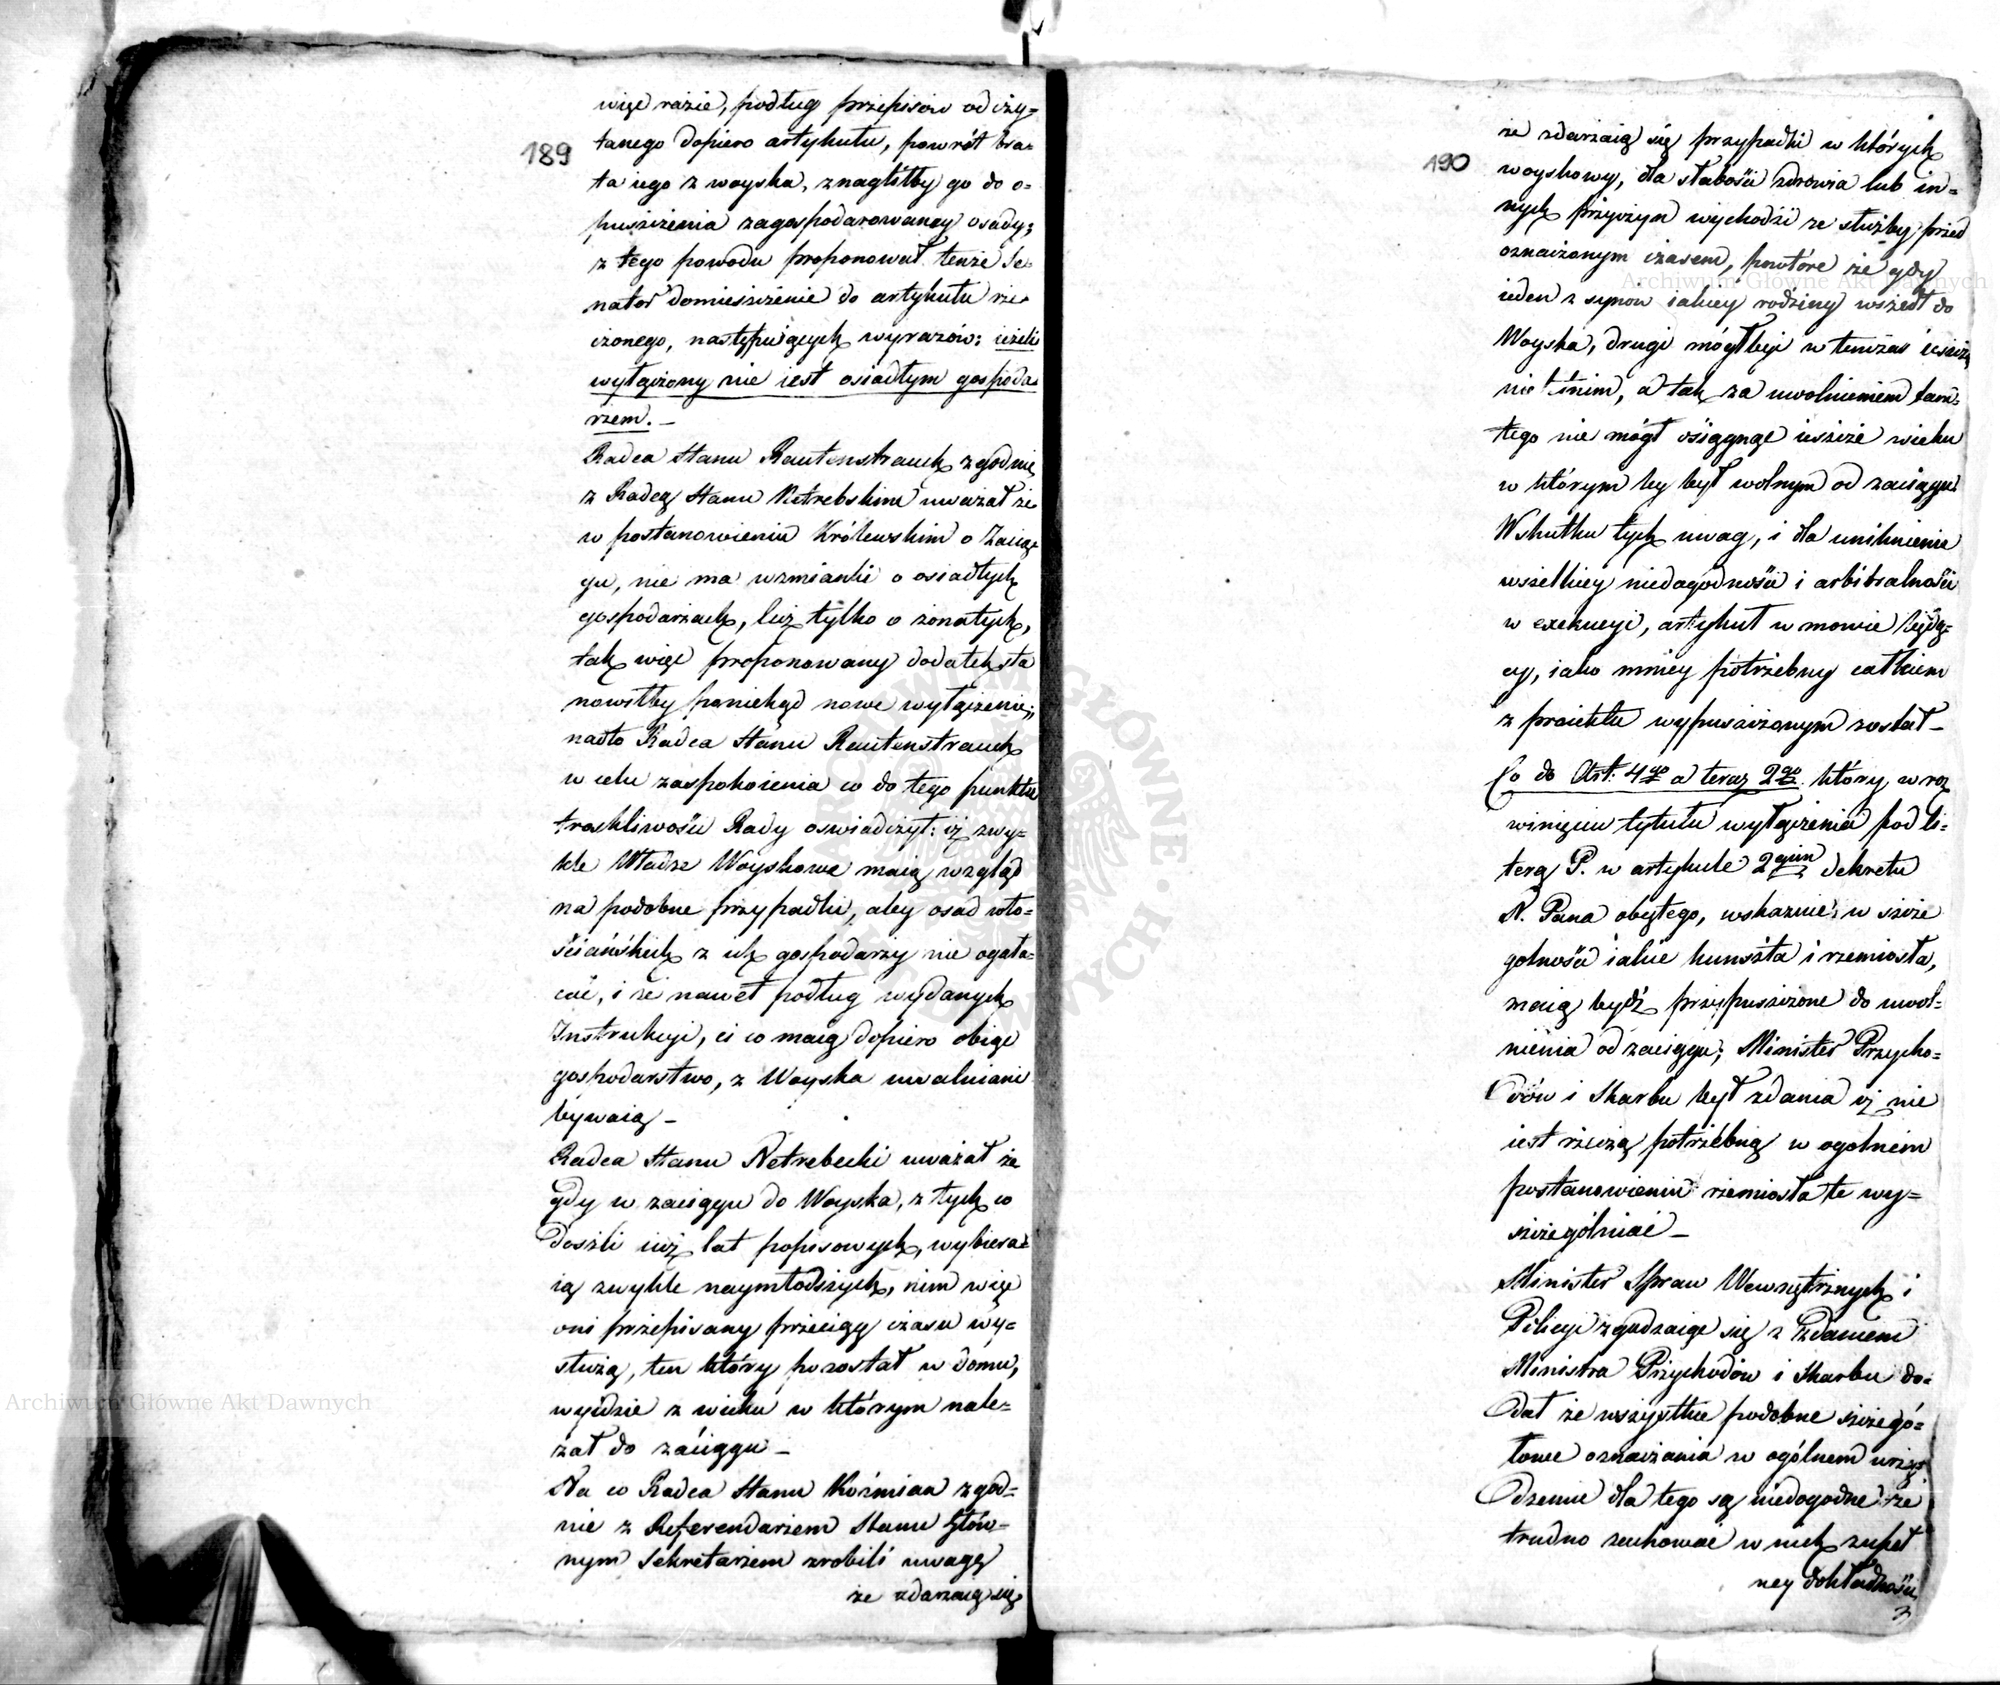 189
więc razie, podług przepisów odczy=
tanego dopiero artykułu, powrót bra=
ta iego z woyska, znagliłby go do o=
puszczenia zagospodarowaney osady;
z tego powodu proponował tenże Se=
nator domieszczenie do artykułu rze=
czonego, następuiących wyrazów: ieżeli
wyłączony nie iest osiadłym gospoda=
rzem. _
Radca Stanu Rautenstrauch zgodnie
z Radcą Stanu Netrebskim uważał że
w postanowieniu Królewskim o Zacią
gu, nie ma wzmianki o osiadłych
gospodarzach, lecz tylko o żonatych,
tak więc proponowany dodatek sta
nowiłby poniekąd nowe wyłączenie;
nadto Radca Stanu Rautenstrauch
w celu zaspokoienia co do tego punktu
troskliwości Rady oświadczył: iż zwy=
kle Władze Woyskowe maią wzgląd
na podobne przypadki, aby osad wło=
ściańskich z ich gospodarzy nie ogała=
cać, i że nawet podług wydanych
Instrukcyi, ci co maią dopiero obiąć
gospodarstwo, z Woyska uwalniani
bywaią _
Radca Stanu Netrebecki uważał że
gdy w zaciągu do Woyska, z tych co
doszli iuż lat popisowych, wybiera=
ią zwykle naymłodszych, nim więc
oni przepisany przeciąg czasu wy=
służą, ten który pozostał w domu,
wyidzie z wieku w którym nale=
żał do zaciągu _
Na co Radca Stanu Koźmian zgod=
nie z Referendarzem Stanu Głów=
nym Sekretarzem zrobili uwagę
że zdarzaią się
190
że zdarzaią się przypadki w których
woyskowy, dla słabości zdrowia lub in=
nych przyczyn wychodzi ze służby przed
oznaczonym czasem, powtóre że gdy
ieden z synow iakiey rodziny wszedł do
Woyska, drugi mógł być w tenczas ieszcze
nieletnim, a tak za uwolnieniem tam=
tego nie mógł osiągnąć ieszcze wieku
w którym by był wolnym od zaciągu.
Wskutku tych uwag, i dla uniknienia
wszelkiey niedogodności i arbitralności
w exekucyi, artykuł w mowie będą=
cy, iako mniey potrzebny całkiem
z proiektu wypuszczonym został _
Co do Art: 4go a teraz 2go. który w roz
winięciu tytułu wyłączenia pod li=
terą P. w artykule 2gim Dekretu
N. Pana obiętego, wskazuie, w szcze
golności iakie kunszta i rzemiosła,
maią bydź przypuszczone do uwol=
nienia od zaciągu; Minister Przycho=
dów i Skarbu był zdania iż nie
iest rzeczą potrzebną w ogolnem
postanowieniu rzemiosła te wy=
szczególniać _
Minister Spraw Wewnętrznych i
Policyi zgadzaiąc się z zdaniem
Ministra Przychodów i Skarbu do=
dał że wszystkie podobne szczegó=
łowe oznaczania w ogólnem urzą
dzeniu dla tego są niedogodne że
trudno zachować w nich zupeł
ney dokładności
Archiwum Główne Akt Dawnych
Archiwum Główne Akt Dawnych